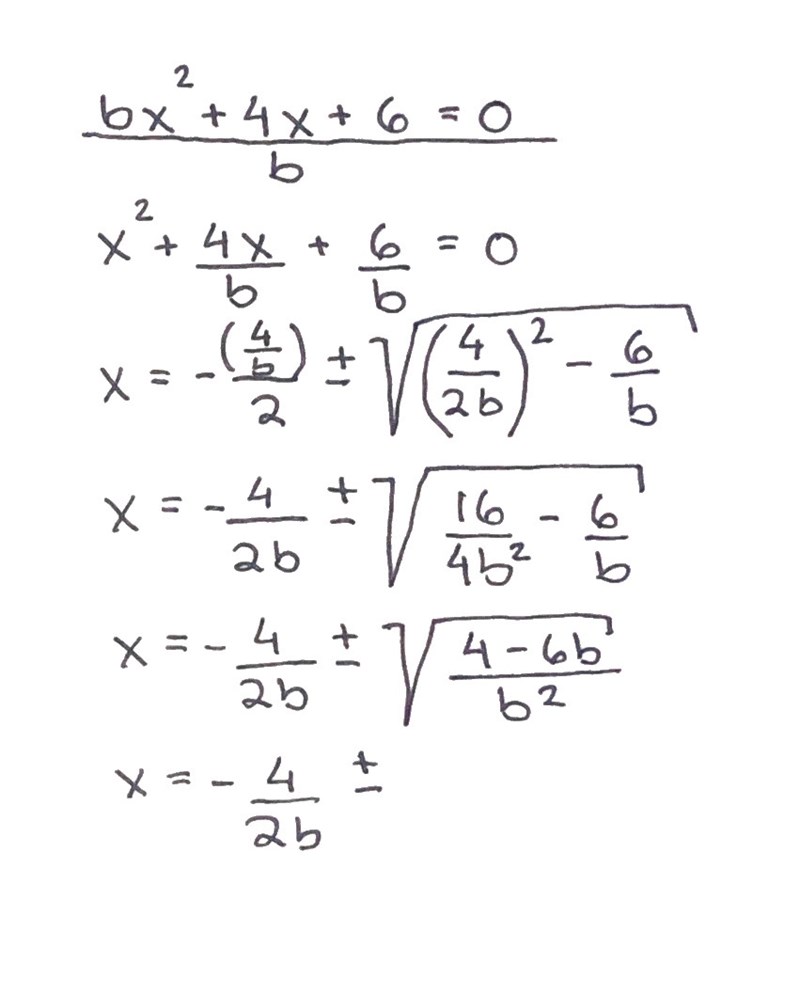 bx² + 4x + 6 = 0
b
x² + 4x/b + 6/b = 0
x = -(4/b)/2 ± √((4/2b)² - 6/b)
x = -4/2b ± √(16/4b² - 6/b)
x = -4/2b ± √((4-6b)/b²)
x = -4/2b ±